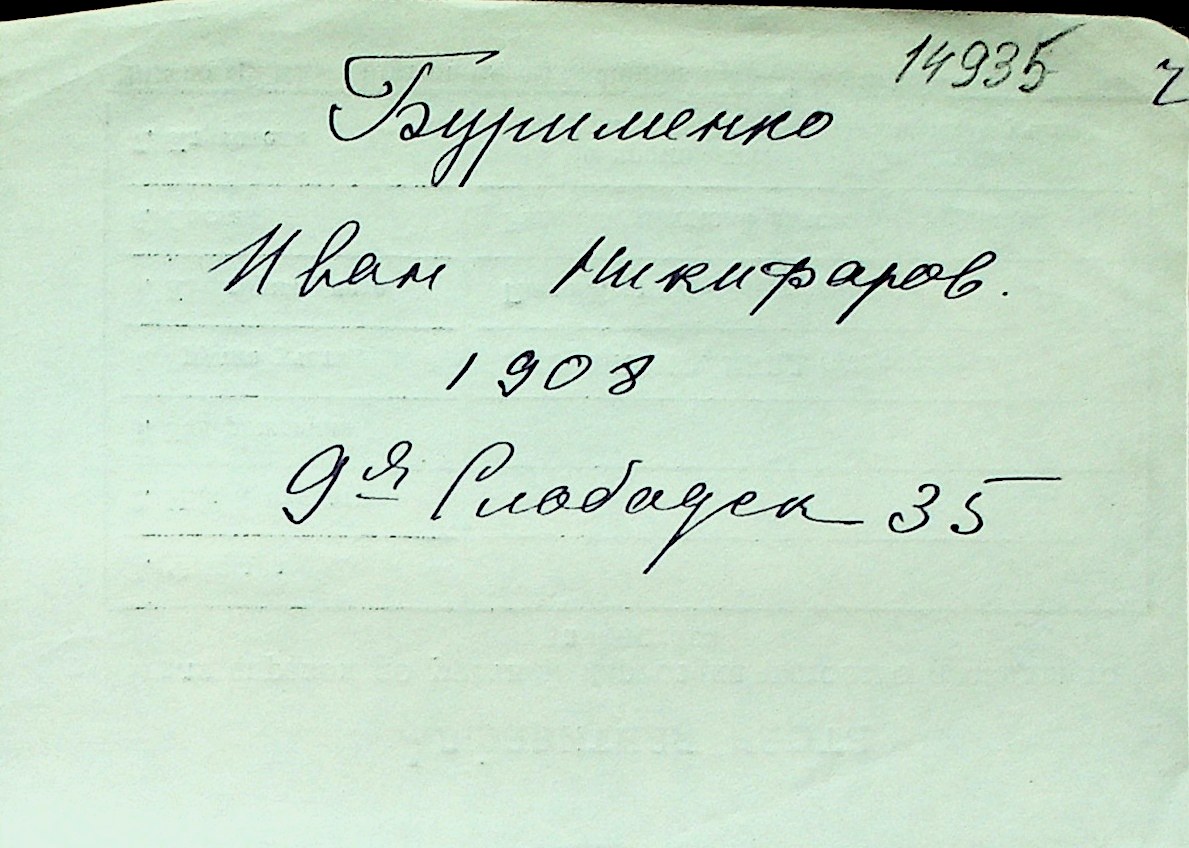 14935 ч
Бурименко
Иван Никифаров.
1908
9ая Слободск 35